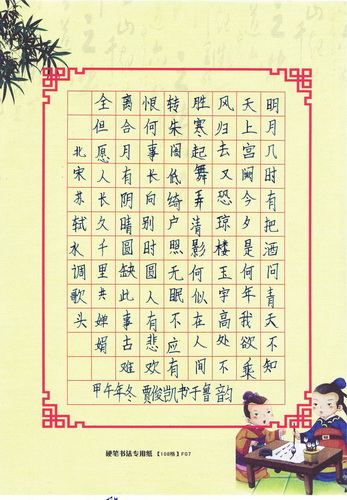 明月几时有把酒问青天不知
天上宫阙今夕是何年我欲乘
风归去又恐琼楼玉宇高处不
胜寒起舞弄清影何似在人间
转朱阁低绮户照无眠不应有
恨何事长向别时圆人有悲欢
离合月有阴晴圆缺此事古难
全但愿人长久千里共婵娟
北宋苏轼水调歌头
甲午年冬 贾俊凯书于鲁韵
硬笔书法专用纸【108格】F07